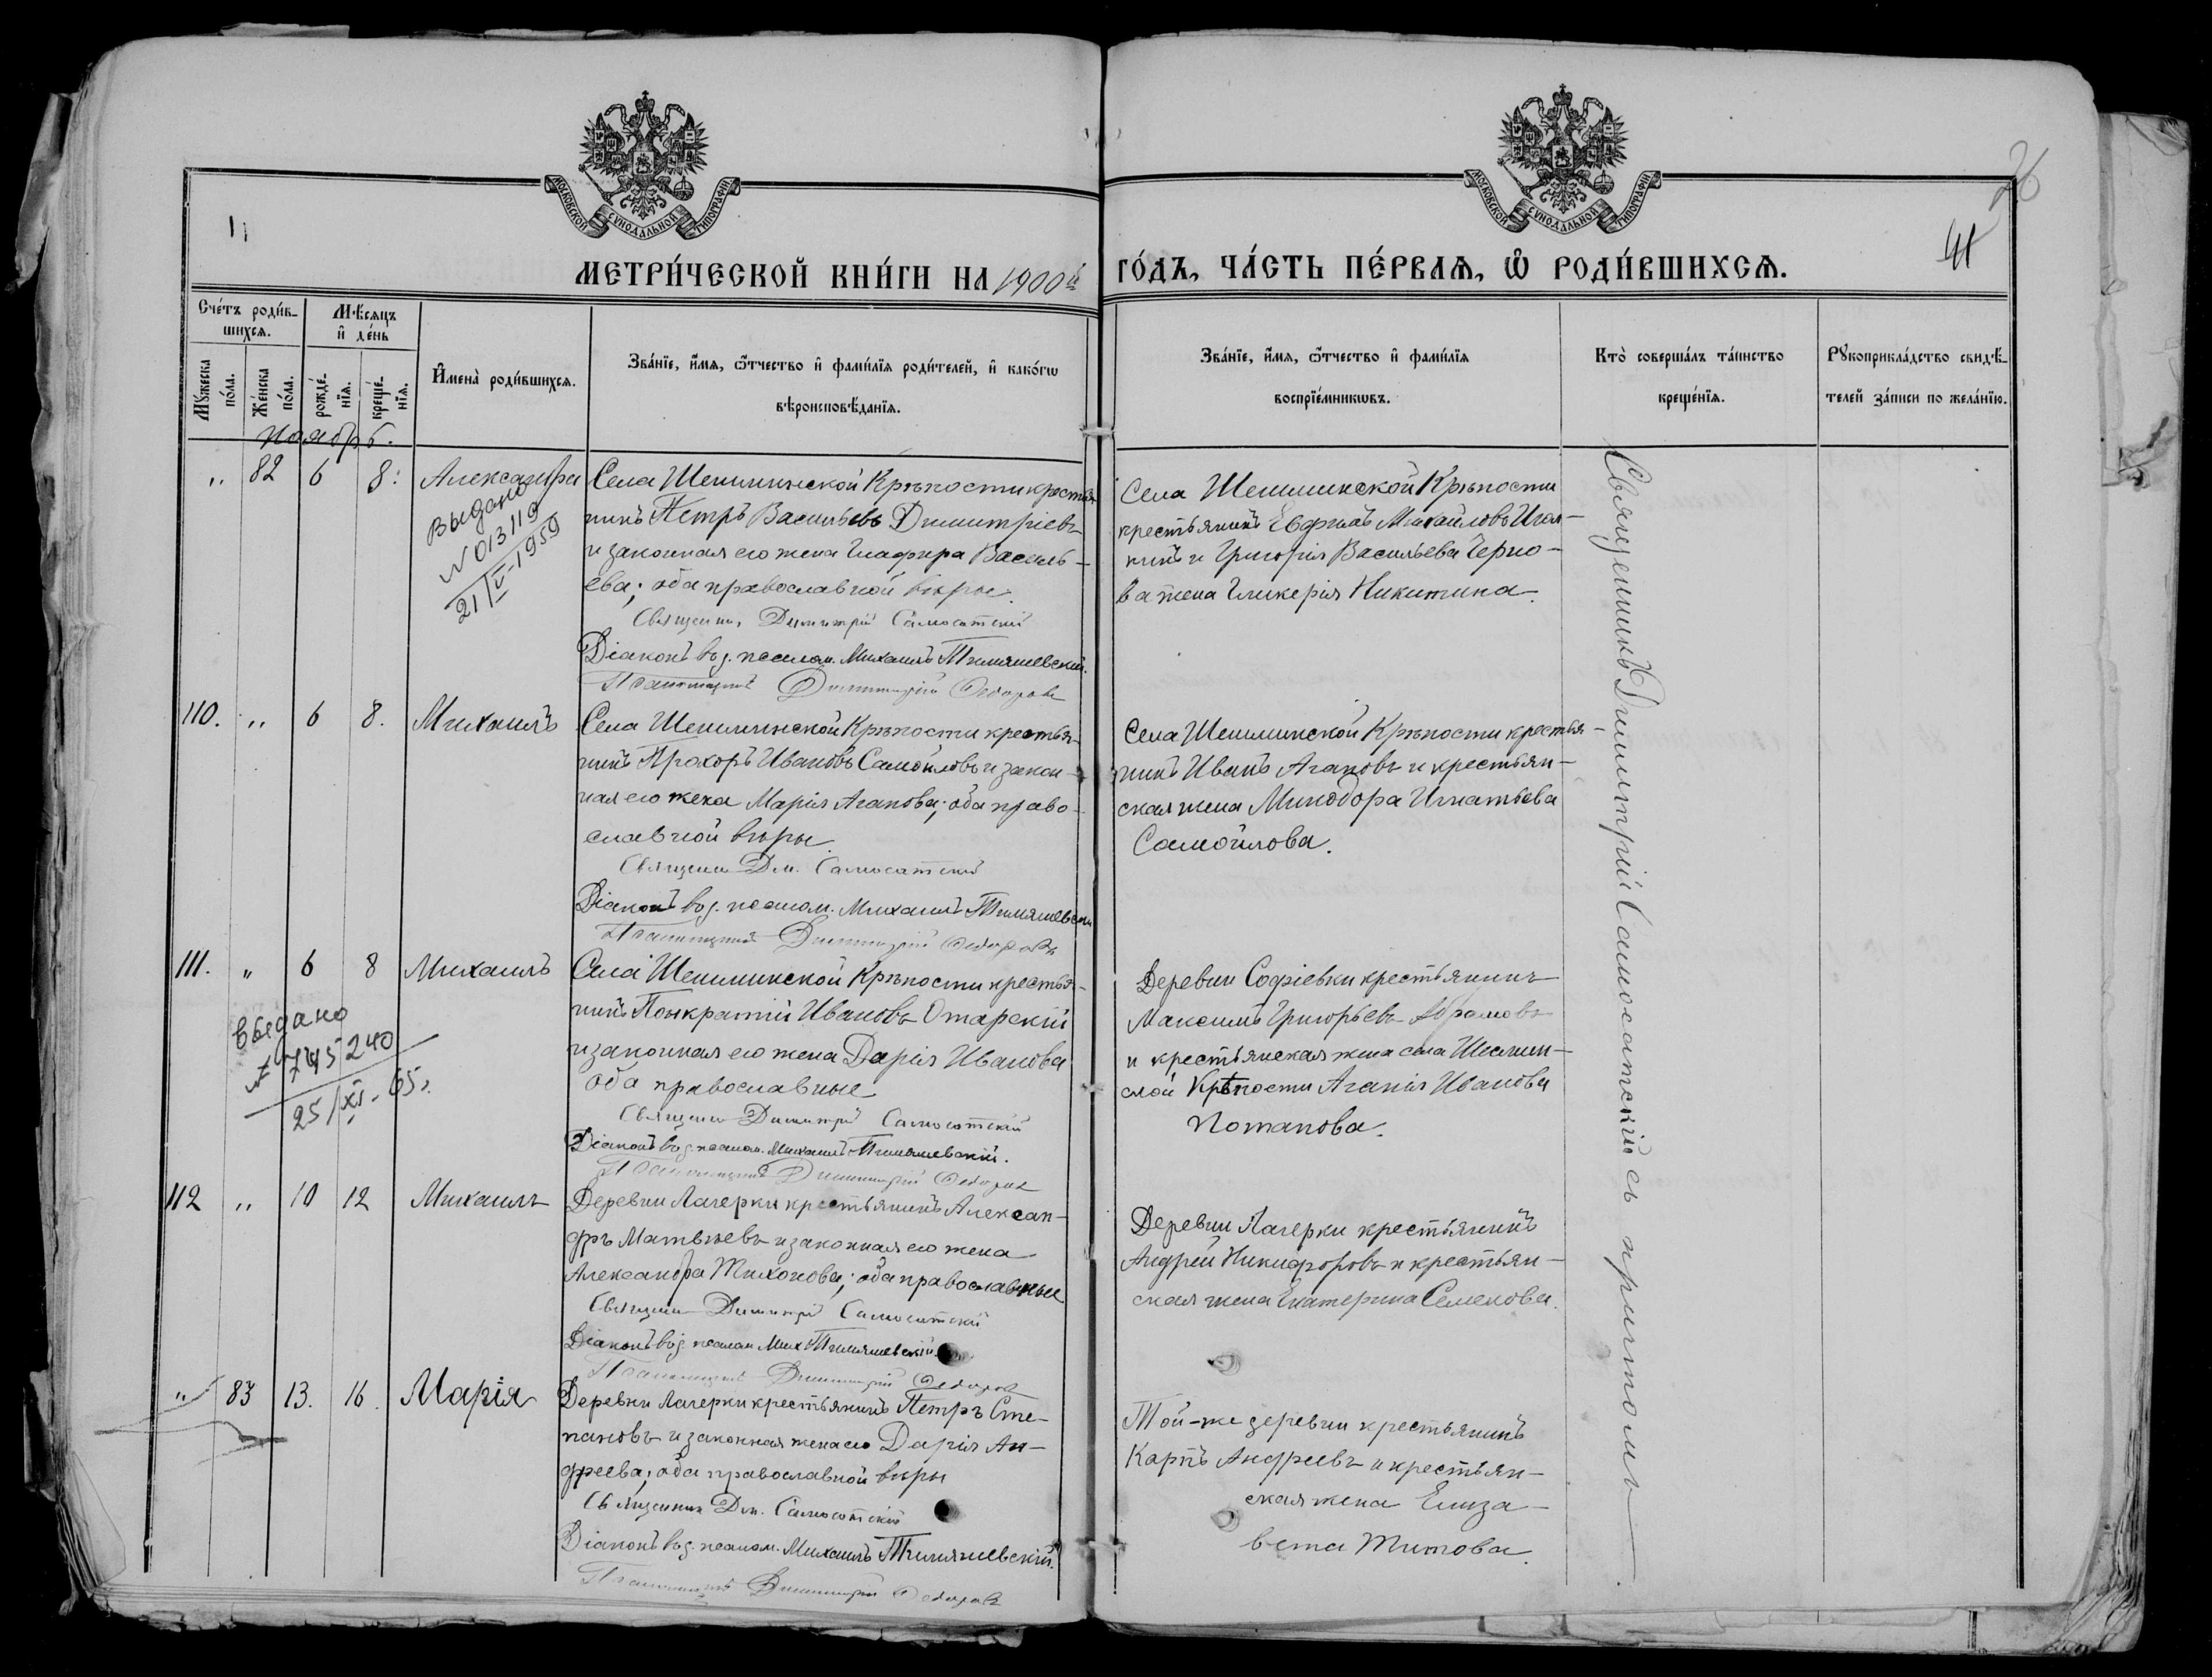 МОСКОВСКОЙ СѴНОДАЛЬНОЙ ТИПОГРАФІИ
МОСКОВСКОЙ СѴНОДАЛЬНОЙ ТИПОГРАФІИ
26
11
41
МЕТРИ́ЧЕСКОЙ КНИ́ГИ НА 1900й ГО́ДЪ, ЧА́СТЬ ПЕ́РВАѦ, Ѽ РОДИ́ВШИХСѦ.
Сче́тъ роди́в-
шихсѧ.
Мꙋжеска по́ла.
Же́нска по́ла.
Мѣ́сѧцъ
и҆ де́нь
рожде́-
нїѧ.
креще́-
нїѧ.
И҆мена̀ роди́вшихсѧ.
Зва́нїе, и҆́мѧ, ѻ҆́тчество и҆ фами́лїѧ роди́телей, и҆ како́гѡ
вѣроисповѣ́данїѧ.
Зва́нїе, и҆́мѧ, ѻ҆́тчество и҆ фами́лїѧ
воспрїе́мникѡвъ.
Кто̀ соверша́лъ та́инство
креще́нїѧ.
Рꙋкоприкла́дство свидѣ́-
телей за́писи по жела́нїю.
Ноябрь.
„ 82 6 8. Александра
Выдано
№ 013119
21/V-1959
Села Шешминской Крѣпости крестья
нинъ Петръ Васильевъ Димитріевъ
и законная его жена Глафира Василь-
ева; оба православной вѣры.
Священн. Димитрій Самосатскій
Діаконъ Михаилъ
Димитрій Ѳедоровъ
Села Шешминской Крѣпости
крестьянинъ Михайловъ
и Григорія Васильева Черно-
ва жена Гликерія Никитина.
110. „ 6 8. Михаилъ
Села Шешминской Крѣпости крестья-
нинъ Прохоръ Ивановъ Самойловъ и закон-
ная его жена Марія Агапова; оба право-
славной вѣры.
Священн. Дм. Самосатскій
Діаконъ Михаилъ
Димитрій Ѳедоровъ
Села Шешминской Крѣпости крестья-
нинъ Иванъ Агаповъ и крестьян-
ская жена Минодора Игнатьева
Самойлова.
111. „ 6 8 Михаилъ
Выдано
№ 745240
25/XI-65г.
Села Шешминской Крѣпости крестья-
нинъ Понкратій Ивановъ Отарскій
и законная его жена Дарія Иванова
оба православные
Священн. Димитрій Самосатскій
Діаконъ Михаилъ
Димитрій Ѳедоровъ
Деревни Софіевки крестьянинъ
Максимъ Григорьевъ Абрамовъ
и крестьянская жена села Шешмин-
ской Крѣпости Агапія Иванова
Потапова.
112 „ 10 12 Михаилъ
Деревни Лагерки крестьянинъ Алексан-
дръ Матвѣевъ и законная его жена
Александра Тихонова; оба православные
Священн. Димитрій Самосатскій
Діаконъ Мих.
Димитрій Ѳедоровъ
Деревни Лагерки крестьянинъ
Андрей Никифоровъ и крестьян-
ская жена Екатерина Семенова.
„ 83 13. 16. Марія
Деревни Лагерки крестьянинъ Петръ Сте-
пановъ и законная жена его Дарія Ан-
дреева; оба православной вѣры
Священникъ Дм. Самосатскій
Діаконъ Михаилъ
Димитрій Ѳедоровъ
Той-же деревни крестьянинъ
Карпъ Андреевъ и крестьян-
ская жена Елиза-
вета Титова.
Священникъ Димитрій Самосатскій съ причтомъ